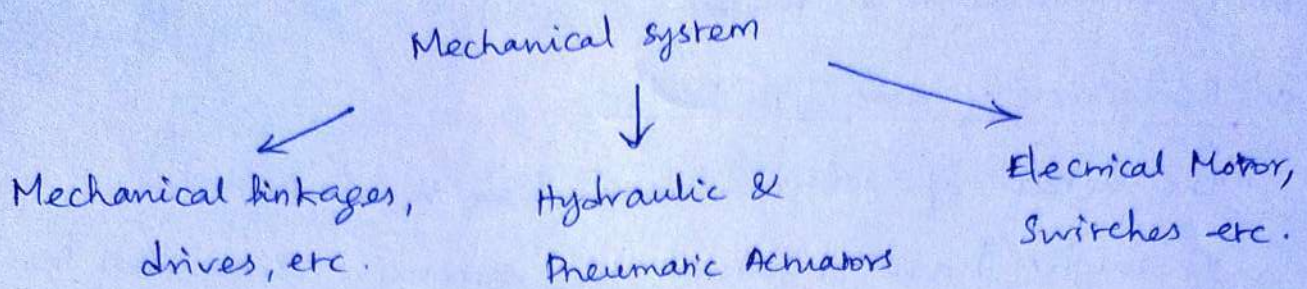 Mechanical system
Mechanical linkages,
drives, etc.
Hydraulic &
Pneumatic Actuators
Elecrical Motor,
Switches etc.